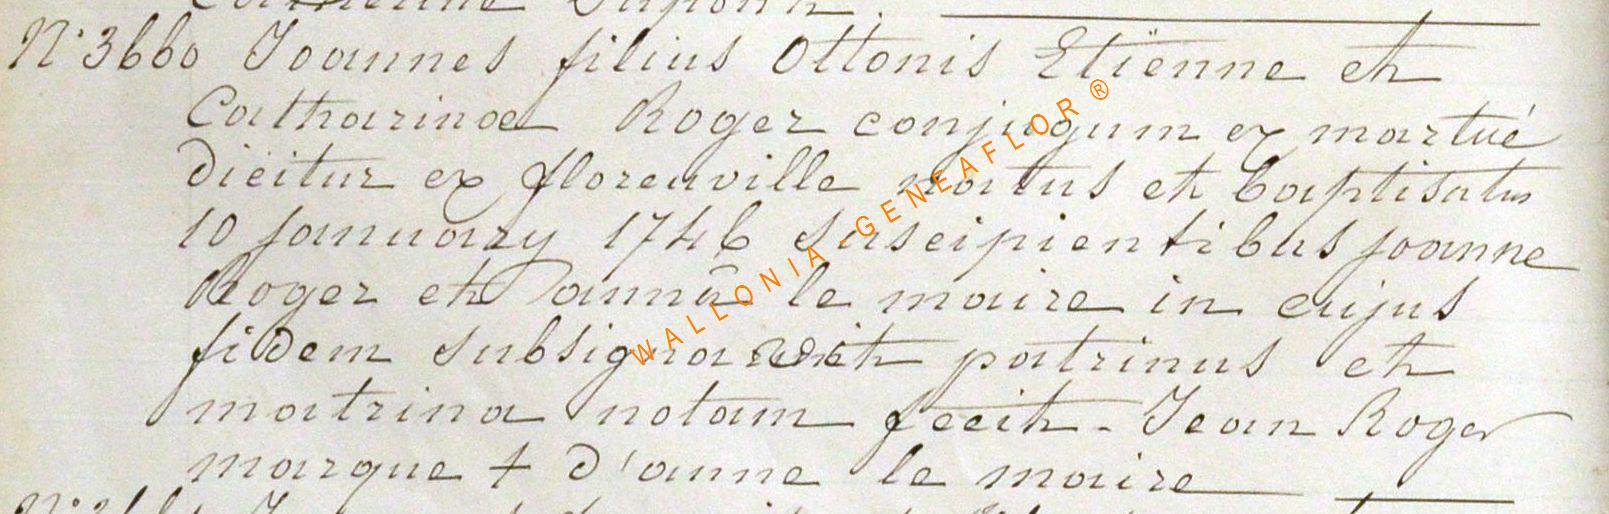 Catherine Dupont.
N° 3660 Joannes filius Ottonis Etienne et
Catharinae Roger conjugum ex martué
dicitur ex florenville natus et baptisatus
10 january 1746 suscipientibus joanne
Roger et annâ le maire in cujus
fidem subsignavit patrinus et
matrina notam fecit - Jean Roger
marque + d'anne le maire
WALLONIA-GENEAFLOR ®